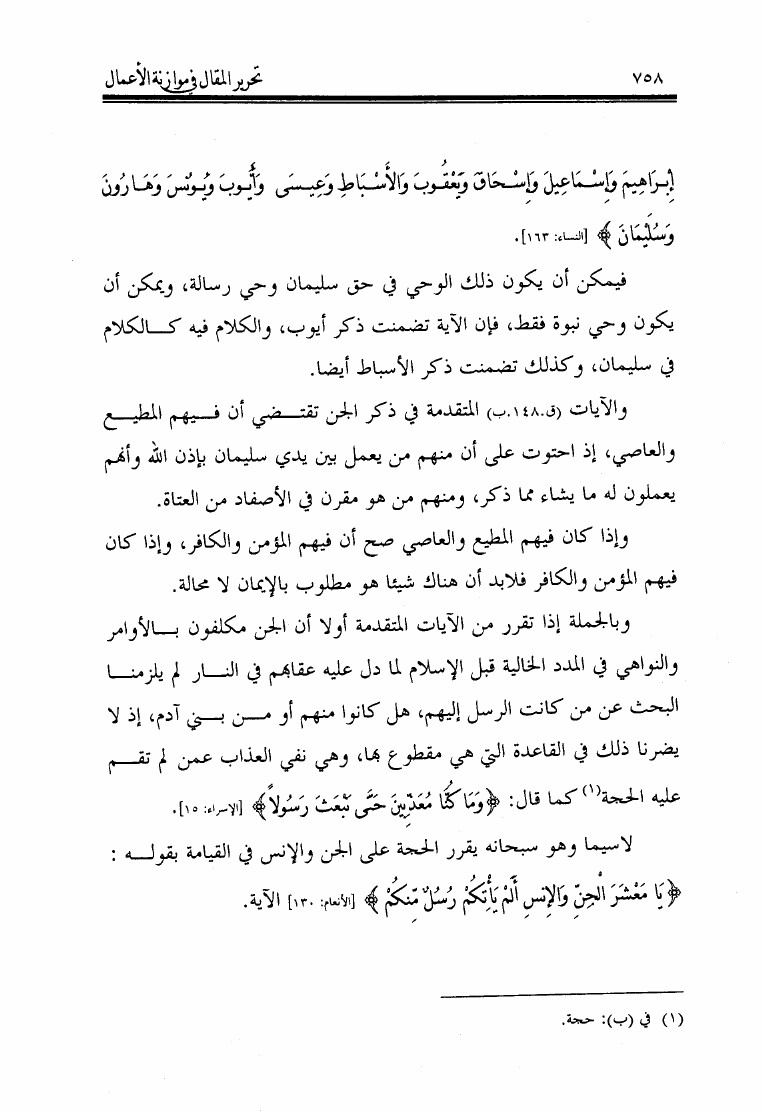 ٧٥٨ تحرير المقال في موازنة الأعمال
إِبرَاهِيمَ وَإِسْمَاعِيلَ وَإِسْحَاقَ وَيَعْقُوبَ وَالأَسْبَاطِ وَعِيسَى وَأَيُّوبَ وَيُونُسَ وَهَارُونَ
وَسُلَيْمَانَ ﴾ [النساء: ١٦٣].
فيمكن أن يكون ذلك الوحي في حق سليمان وحي رسالة، ويمكن أن
يكون وحي نبوة فقط، فإن الآية تضمنت ذكر أيوب، والكلام فيه كالكلام
في سليمان، وكذلك تضمنت ذكر الأسباط أيضا.
والآيات (ق.١٤٨.ب) المتقدمة في ذكر الجن تقتضي أن فيهم المطيع
والعاصي، إذ احتوت على أن منهم من يعمل بين يدي سليمان بإذن الله وأنهم
يعملون له ما يشاء مما ذكر، ومنهم من هو مقرن في الأصفاد من العتاة.
وإذا كان فيهم المطيع والعاصي صح أن فيهم المؤمن والكافر، وإذا كان
فيهم المؤمن والكافر فلابد أن هناك شيئا هو مطلوب بالإيمان لا محالة.
وبالجملة إذا تقرر من الآيات المتقدمة أولا أن الجن مكلفون بالأوامر
والنواهي في المدد الخالية قبل الإسلام لما دل عليه عقابهم في النار لم يلزمنا
البحث عن من كانت الرسل إليهم، هل كانوا منهم أو من بني آدم، إذ لا
يضرنا ذلك في القاعدة التي هي مقطوع بها، وهي نفي العذاب عمن لم تقم
عليه الحجة(١) كما قال: ﴿وَمَا كُنَّا مُعَذِّبِينَ حَتَّى نَبْعَثَ رَسُولاً﴾ [الإسراء: ١٥].
لاسيما وهو سبحانه يقرر الحجة على الجن والإنس في القيامة بقوله :
﴿يَا مَعْشَرَ الْجِنِّ وَالإِنسِ أَلَمْ يَأْتِكُمْ رُسُلٌ مِّنكُمْ ﴾ [الأنعام: ١٣٠] الآية.
(١) في (ب): حجة.